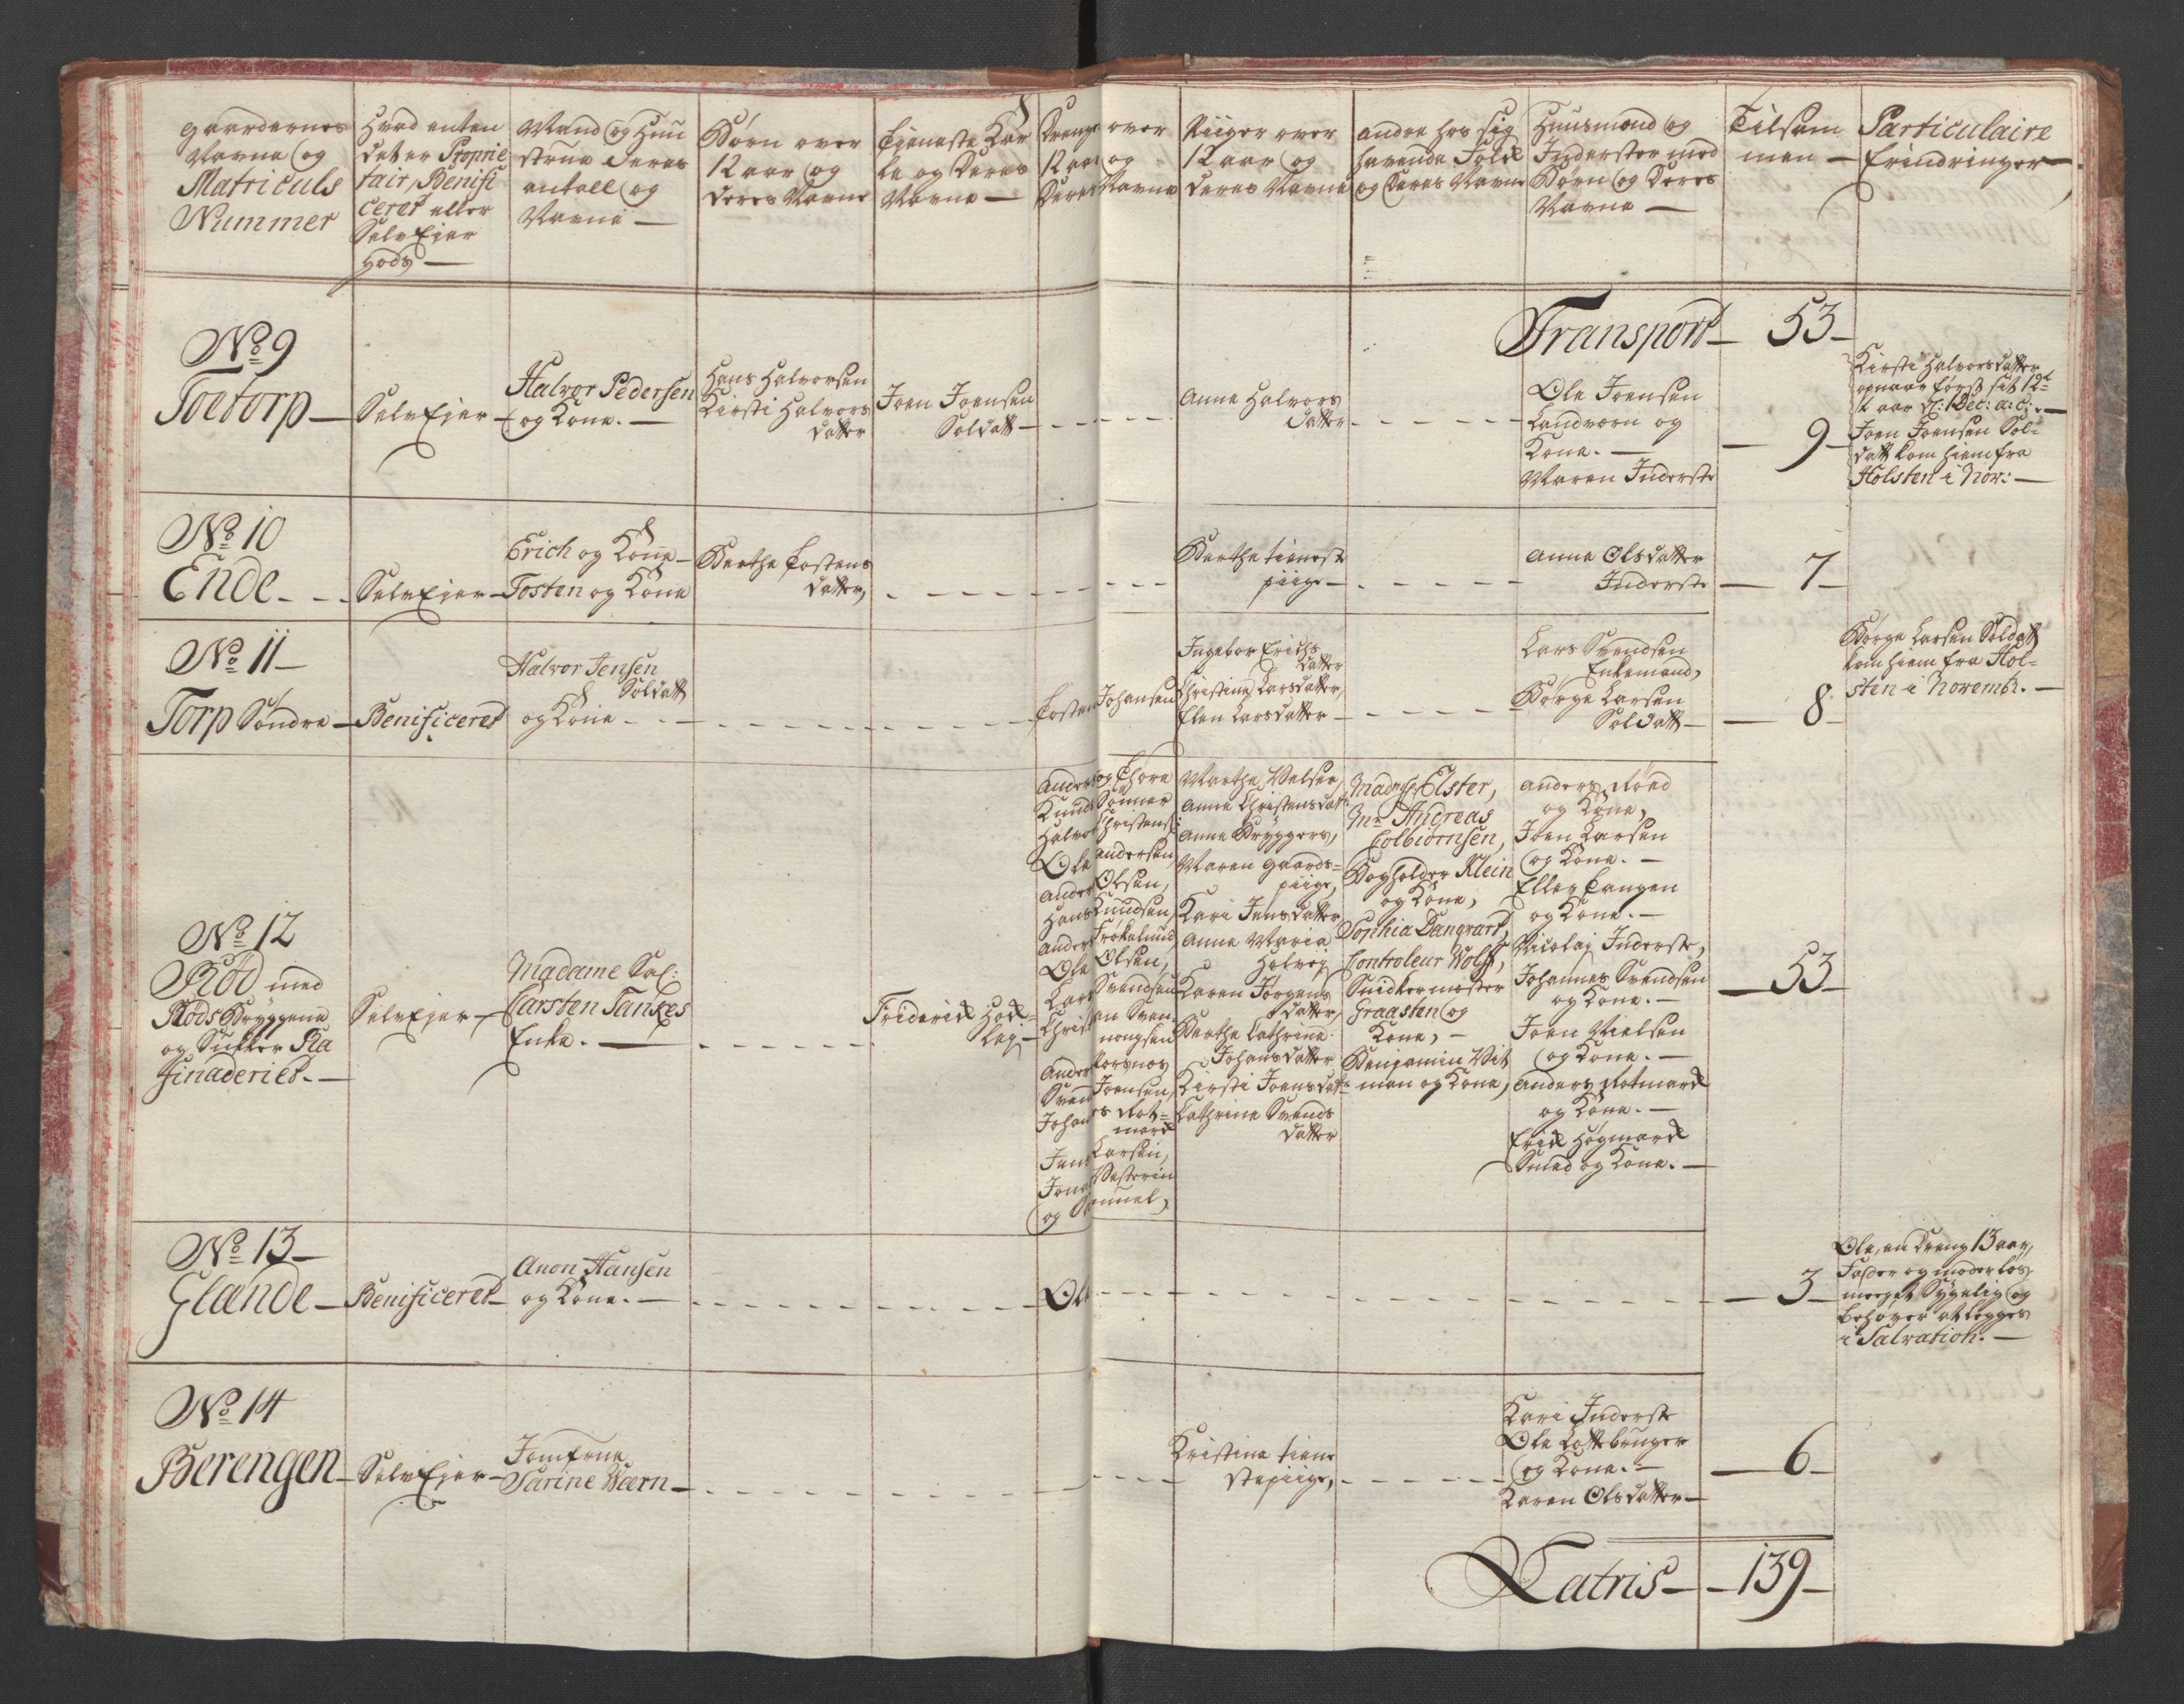 Gaardernes
Navne og
Matriculs
Nummer
Hvad enten
det er Proprie
tair, Benifi
ceret eller
SelvEier
Gods —
Mand og Huu
strue deres
antall og
Navne —
Børn over
12 aar og
deres Navne
Tieneste Kar
le og deres
Navne —
Drenge over
12 aar og
deres Navne
Piiger over
12 aar og
deres Navne
andre hos sig
havende Folk
og deres Navne
Huusmænd og
Inderster med
Børn og deres
Navne —
Tilsam
men —
Particulaire
Erindringer —
Transport — 53 —
No 9
Toetorp —
SelvEier —
Halvor Pedersen
og Kone. —
Hans Halvorsen
Kirsti Halvors
datter
Joen Joensen
Soldatt —
Anne Halvors
datter
Ole Joensen
Landværn og
Kone. —
Maren Inderste
— 9 —
Kirsti Halvorsdatter
opnaar først sit 12te
aar d: 1 Dec: a: c: —
Joen Joensen Sol-
datt kom hiem fra
Holsten i Nov: —
No 10
Ende
SelvEier —
Erich og Kone —
Tosten og Kone
Berthe Tostens
datter,
Berthe tieneste
piige —
Anna Olsdatter
Inderste
— 7 —
No 11 —
Torp Søndre —
Benificeret
Halvor Jensen
Soldatt
og Kone
Tosten Johansen
Ingebor Erichs
datter
Christine Larsdatter,
Elen Larsdatter —
Lars Svendsen
Enkemand,
Børge Larsen
Soldatt —
— 8 —
Børge Larsen Soldatt
kom hiem fra Hol-
sten i Novembr. —
No 12
Rød med
Røds Bryggene
og Sukker Ra
finaderiet. —
SelvEier —
Madame Sal:
Carsten Tankes
Enke. —
Friderik
Anders og Thore
Knuds Sønner
Halvor Christens:
Ole Andersen,
Anders Olsen,
Hans Knudsen,
Anders
Ole Olsen,
Lars Svendsen
Christian Sven
Anders
Svend Joensen,
Johannes Rot-
mark
Jens Larsen,
og Samuel,
Marthe
Anne Christensdatt:
Anne Bryggers,
Maren gaards-
piige,
Kari Jensdatter
Anne Maria
Karen Jørgens
datter,
Berthe Cathrine
Johansdatter
Kirsti Joensdatt:
Cathrine Svends
datter
Madme Elster,
Mr Andreas
Colbiørnsen,
Bogholder Klein
og Kone,
Sophia Dangvart,
Controleur Wolff,
Snidkermester
Graasten og
Kone, —
Benjamin Vit
man og Kone,
Anders Røed
og Kone,
Joen Larsen
og Kone. —
Ellev Tangen
og Kone. —
Nicolaj Inderste,
Johannes Svendsen
og Kone. —
Joen Nielsen
og Kone. —
Anders Rotmark
og Kone. —
Erik Høgmark
Smed og Kone. —
— 53 —
No 13 —
Glænde —
Benificeret —
Anon Hansen
og Kone. —
Ole
— 3 —
Ole, en dreng 13 aar,
Fader og moderløs,
meget Sygelig og
behøver at legges
i Salvation. —
No 14
Berengen —
SelvEier —
Jomfrue
Sarine Wærn —
Kristine tiene
stepiige,
Kari Inderste
Ole
og Kone. —
Karen Olsdatter —
— 6 —
Latris — — 139 —